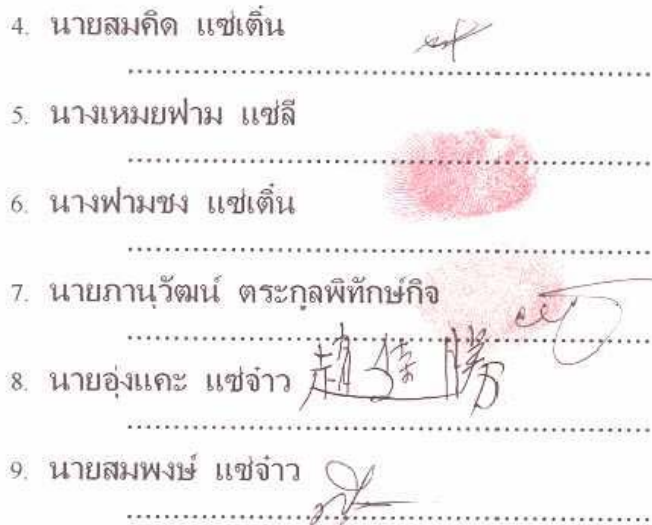 4. นายสมคิด แซ่เติ๋น
5. นางเหมยฟาม แซ่ลี
6. นางฟามชง แซ่เติ๋น
7. นายภานุวัฒน์ ตระกูลพิทักษ์กิจ
8. นายอุ่งแคะ แซ่จ๋าว 趙 勝
9. นายสมพงษ์ แซ่จ๋าว